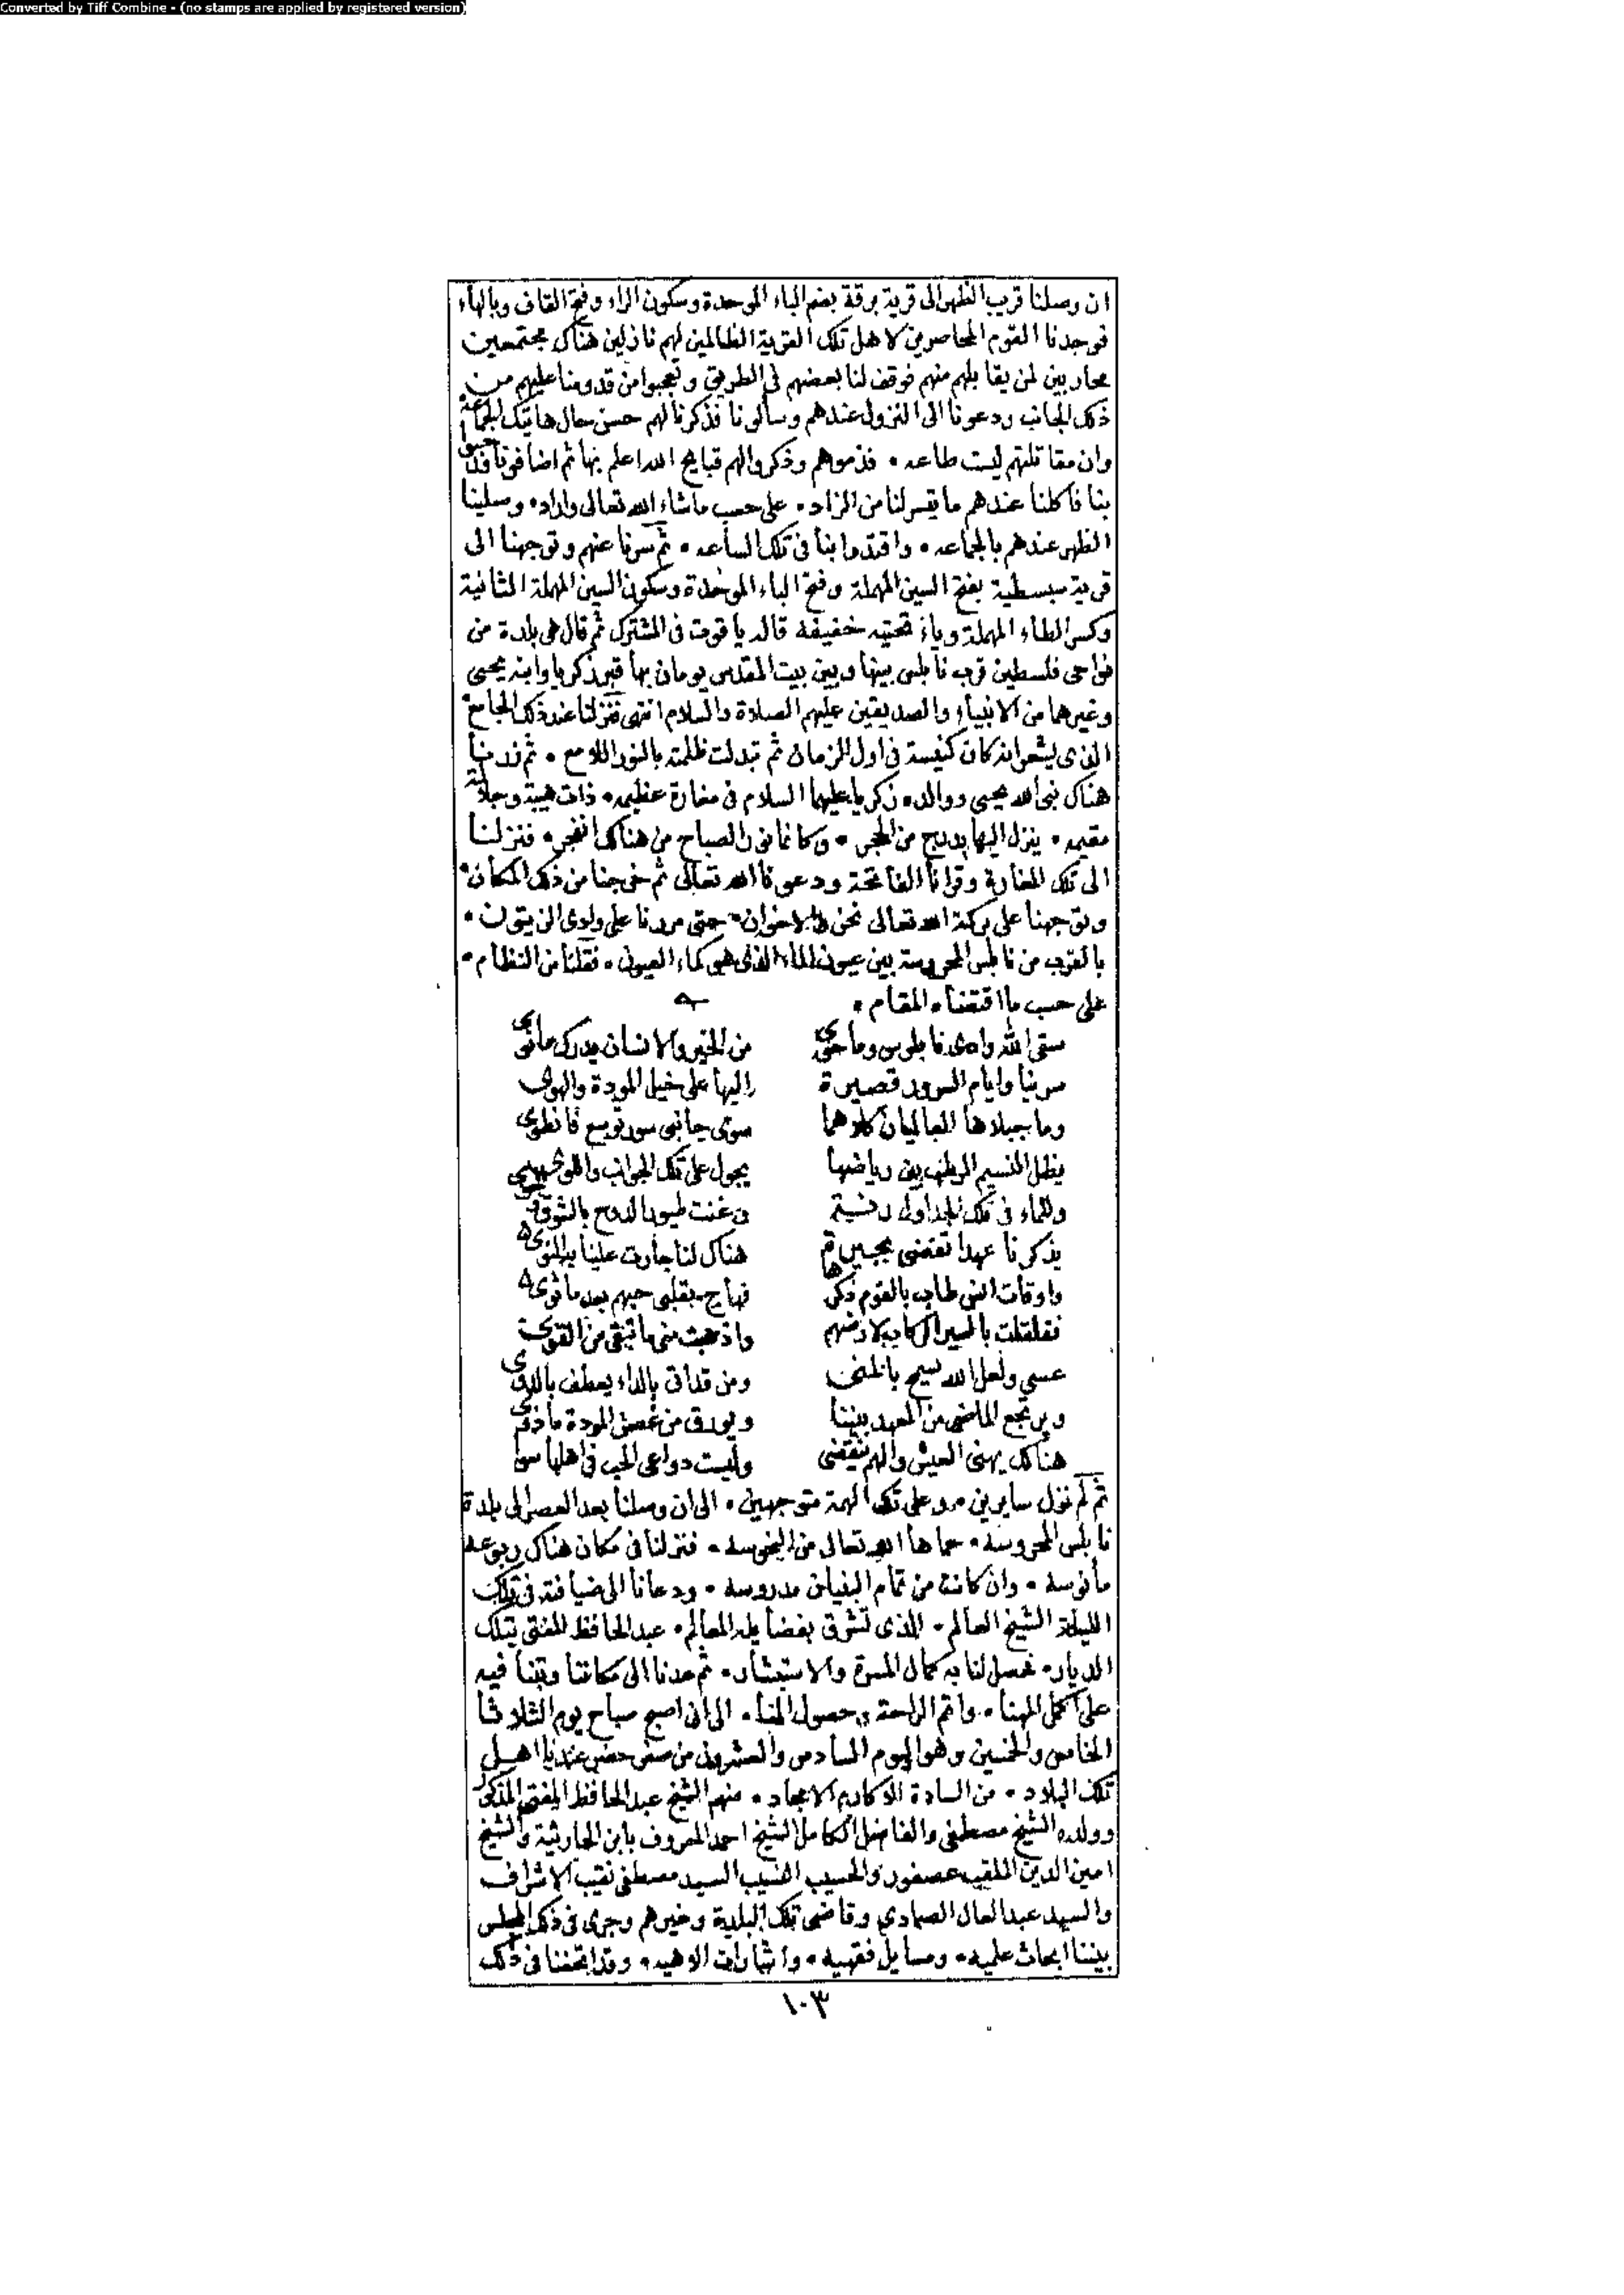 Converted by Tiff Combine - (no stamps are applied by registered version)
ان وصلنا قريب الظهر الى قرية برقة بضم الباء الموحدة وسكون الراء وفتح القاف وبالهاء
فوجدنا القوم المحاصرين لاهل تلك القرية الظالمين لهم نازلين هناك مجتمعين
محاربين لمن يقابلهم منهم فوقف لنا بعضهم في الطريق وتعجبوا من قدومنا عليهم من
ذلك الجانب ودعونا الى النزول عندهم وسألونا فذكرنا لهم حسن حال هاتيك الجماعة
وان مقاتلتهم ليست طاعه • فذموهم وذكروا لهم قبايح الله اعلم بها ثم اضافونا
بنا فاكلنا عندهم ما يتسر لنا من الزاد • على حسب ماشاء الله تعالى واراد • وصلينا
الظهر عندهم بالجماعه • واقتدوا بنا في تلك الساعه • ثم سرنا عنهم وتوجهنا الى
قرية سبسطية بفتح السين المهملة وفتح الباء الموحدة وسكون السين المهملة الثانية
وكسر الطاء المهملة وياء تحتيه خفيفة قاله ياقوت في المشترك ثم قال هي بلدة من
نواحي فلسطين قرب نابلس بينها وبين بيت المقدس يومان بها قبر زكريا وابنه يحيى
وغيرهما من الانبياء والصديقين عليهم الصلاة والسلام انتهى فنزلنا عند ذلك الجامع
الذي يشعر انه كان كنيسة في اول الزمان ثم تبدلت ظلمته بالنور اللامع • ثم زرنا
هناك نبي الله يحيى ووالده زكريا عليهما السلام في مغارة عظيمه • ذات هيبة وجلالة
مقيمه • ينزل اليها بدرج من الحجر • وكانما نور الصباح من هناك انفجر • فنزلنا
الى تلك المغارة وقرانا الفاتحة ودعونا الله تعالى ثم خرجنا من ذلك المكان •
وتوجهنا على بركة الله تعالى نحن والاخوان • حتى مررنا على وادي الزيتون •
بالقرب من نابلس المحروسة بين عيون الماء الذي هو كماء العيون • فقلنا من النظام •
على حسب ما اقتضاه المقام •
سقى الله وادي نابلوس وما حوى من الخير والانسان يدرك ما نوى
سرينا وايام السرور قصيرة اليها على خيل المودة والهوى
وما جبلاها العاليان كلاهما سوى جانبي سور توسع فانطوى
يظل النسيم الرطب بين رياضها يجول على تلك الجوانب واللوى
وللماء في تلك الجداول رنة وغنت طيور الدوح بالشوق
يذكرنا عهدا تقضى بجيرة هناك لنا جارت علينا يد النوى
واوقات انس طاب بالقوم ذكرها فهاج بقلبي حبهم بعد ما ثوى
فقلقلت بالسير الركاب لارضهم واذهبت مني ما تبقى من القوى
عسى ولعل الله يسمح باللقى ومن قد اتى بالداء يعطف بالدوى
ويرتجع الماضي من العهد بيننا ويورق من غصن المودة ما ذوى
هنالك يهنى العيش والهم ينقضي وليست دواعي الحب في اهلها سوا
ثم لم نزل سايرين على تلك الهمة متوجهين • الى ان وصلنا بعد العصر الى بلدة
نابلس المحروسه • حماها الله تعالى من النحوسه • فنزلنا في مكان هناك ربوعه
مأنوسه • وان كانت من تمام البنيان مدروسه • ودعانا الى ضيافته في تلك
الليلة الشيخ العالم • الذي تشرق بفضايله المعالم • عبد الحافظ المفتي بتلك
الديار • فحصل لنا به كمال المسرة والاستبشار • ثم عدنا الى مكاننا وبتنا فيه
على اكمل الهنا • واتم الراحة وحصول المنا • الى ان اصبح صباح يوم الثلاثا
الخامس والخمسين وهو اليوم السادس والعشرون من صفر حضر عندنا اهل
تلك البلاد • من السادة الاكارم الامجاد • منهم الشيخ عبد الحافظ المفتي المذكور
وولده الشيخ مصطفى والفاضل الكامل الشيخ احمد المعروف بابن الحارثية والشيخ
امين الدين الملقب عصفور والحسيب النسيب السيد مصطفى نقيب الاشراف
والسيد عبد العال الصمادي وقاضي تلك البلدة وغيرهم وجرى في ذلك المجلس
بيننا ابحاث علميه • ومسايل فقهيه • واشارات الاهيه • وقد اتحفنا في ذلك
١٠٣